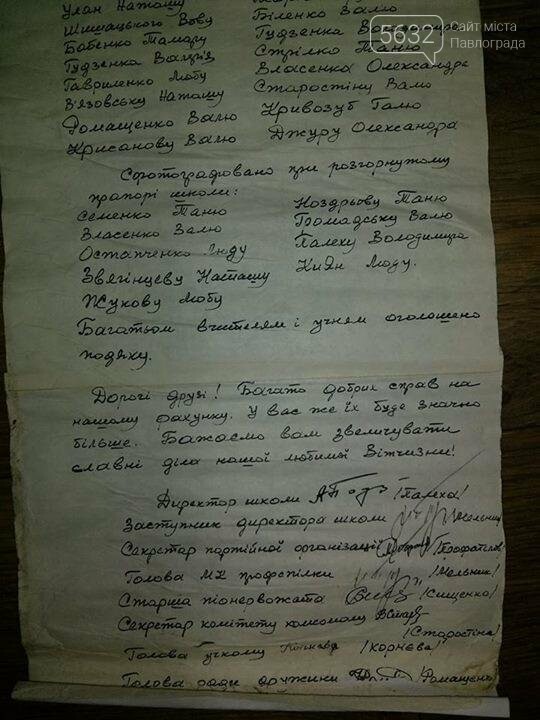 Улан Наташу
Шишацького Вову
Бабенко Тамару
Гудзенка Валерія
Гавриленко Любу
В'язовську Наташу
Ромащенко Валю
Крисанову Валю
Біленко Валю
Гудзенка
Стрілко Таню
Власенка Олександра
Старостіну Валю
Кривозуб Галю
Джуру Олександра
5632 Сайт міста Павлограда
Сфотографовано при розгорнутому
прапорі школи:
Семенко Таню
Власенко Валю
Остапченко Люду
Звягінцеву Наташу
Жукову Любу
Ноздрьову Таню
Громадську Валю
Палеху Володимира
Киян Люду.
Багатьом вчителям і учням оголошено
подяку.
Дорогі друзі! Багато добрих справ на
нашому рахунку. У вас же їх буде значно
більше. Бажаємо вам звеличувати
славні діла нашої любимої Вітчизни!
Директор школи /Палеха/
Заступник директора школи /Мельник
Секретар партійної організації
Голова МК профспілки /Мельник/
Старша піонервожата /Сищенко/
Секретар комітету комсомолу
/Старостіна/
Голова учкому /Корнєва/
Голова ради дружини /Ромащенк